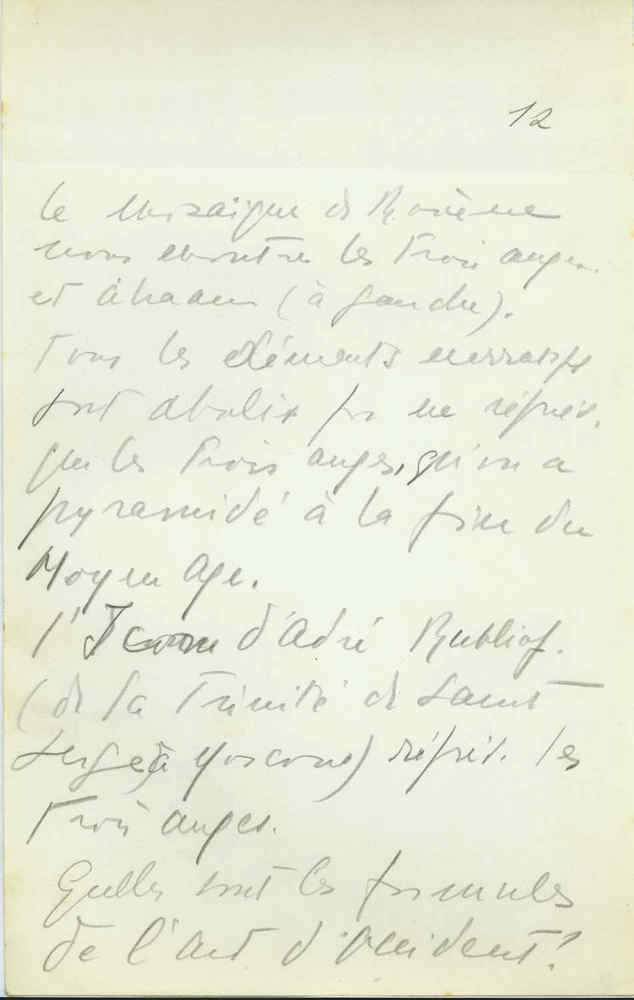 12
Le Mosaïque de Ravenne
nous montre les Trois anges
et Abraam (à gauche).
Tous les éléments narratifs
sont abolis représ.
que les trois anges, qu'on a
pyramidé à la fin du
Moyen Age.
l'Icone d'Adré Rubliof.
(de la Trinité de Saint
Serge à Moscou) représ. les
Trois anges.
Quelles sont les formules
de l'Art d'Occident?